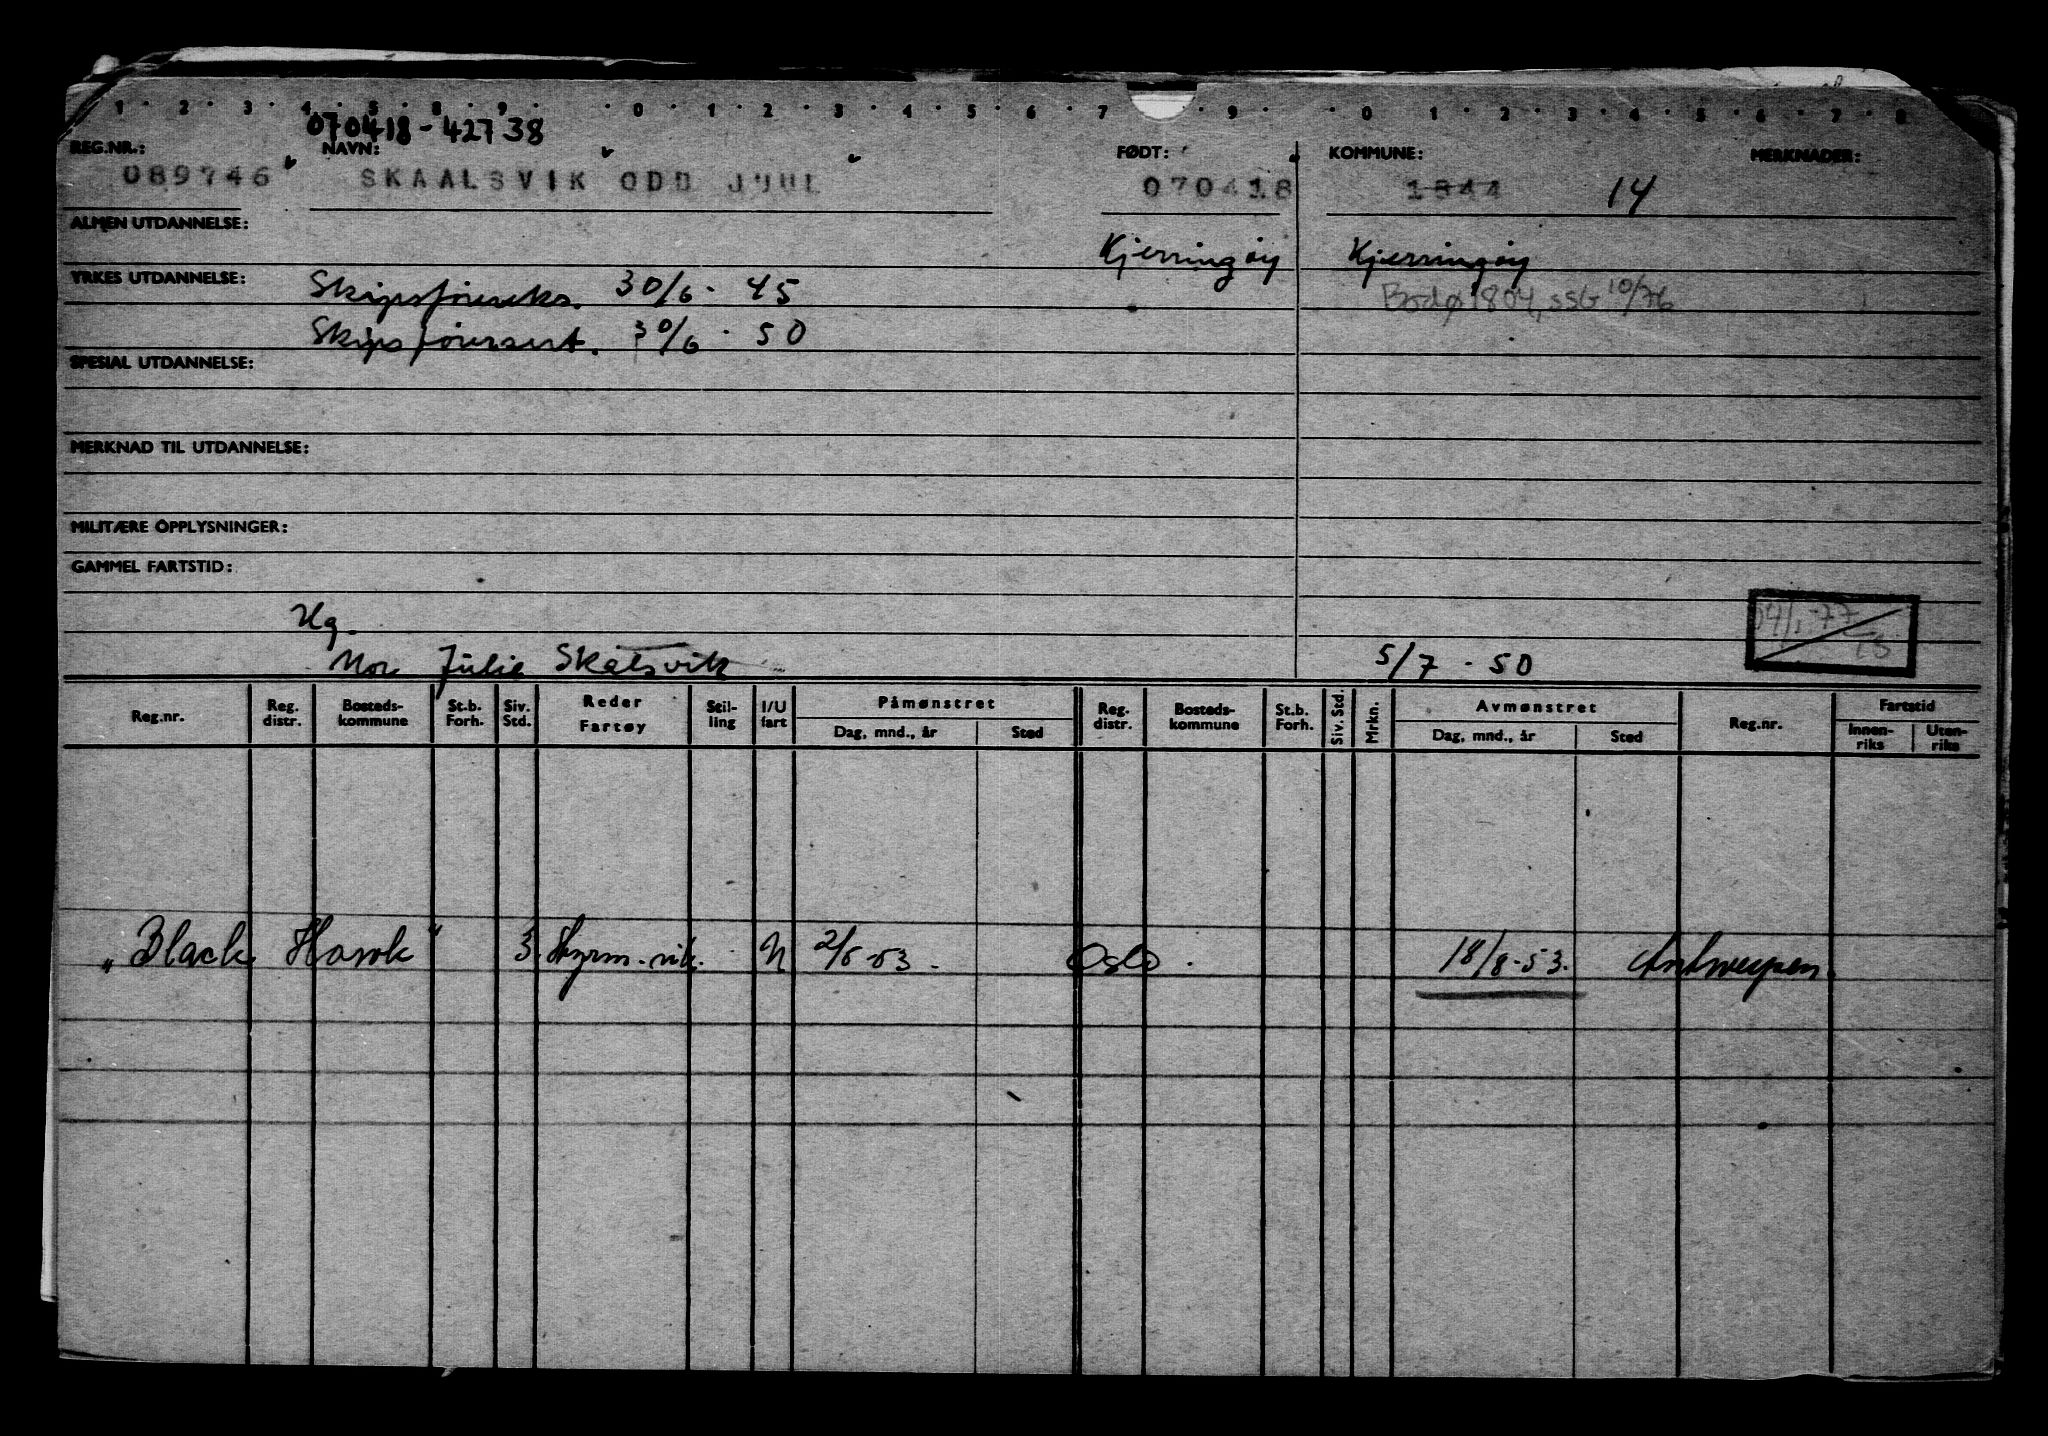 1 2 3 4 5 6 9 0 1 2 3 4 5 6 7 9 0 1 2 3 4 5 6 7 8
070418-42738
REG.NR.: NAVN: FØDT: KOMMUNE: MERKNADER:
089746 SKAALSVIK ODD JUUL 070418 1844 14
ALMEN UTDANNELSE:
Kjerringøy Kjerringøy
YRKES UTDANNELSE: Skipsførereks. 30/6 - 45 Bodø 1804, SSB 10/76
Skipsførersert. 30/6 - 50
SPESIAL UTDANNELSE:
MERKNAD TIL UTDANNELSE:
MILITÆRE OPPLYSNINGER:
GAMMEL FARTSTID:
Ug.
Mor Julie Skålsvik 5/7 - 50
Reg.nr. Reg. distr. Bosteds-kommune St.b. Forh. Siv. Std. Reder Fartøy Stil-ling I/U fart Påmønstret Dag, mnd., år Sted Reg. distr. Bosteds-kommune St.b. Forh. Siv. Std. Mrkn. Avmønstret Dag, mnd., år Sted Reg.nr. Fartstid Innen-riks Uten-riks
"Black Hawk" 3. Styrm. vik. U 2/5-53. Oslo. 18/8-53. Antwerpen.